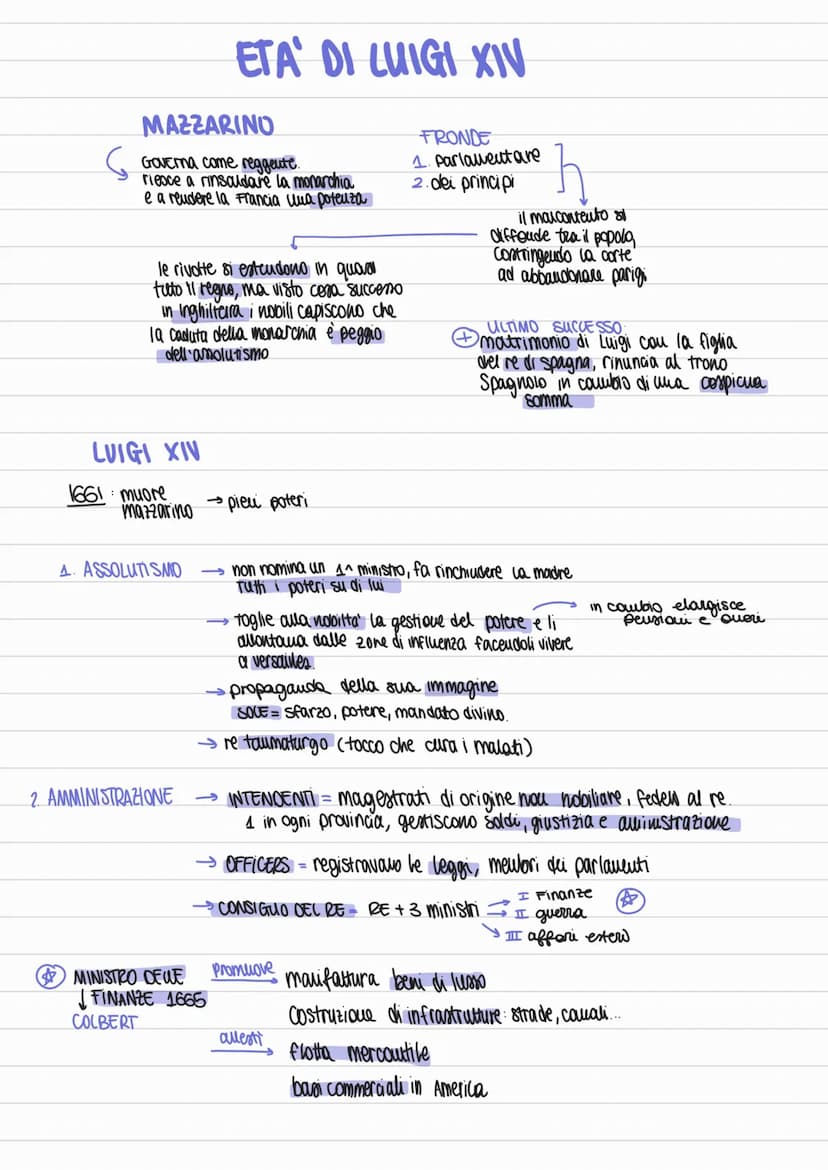 ETA' DI LUIGI XIV
MAZZARINO
Governa come reggente.
riesce a rinsaldare la monarchia
e a rendere la Francia una potenza
FRONDE
1. parlamentare
2. dei principi
il malcontento si
diffonde tra il popolo,
costringendo la corte
ad abbandonare parigi
le rivolte si estendono in quasi
tutto il regno, ma visto cosa successo
in Inghilterra i nobili capiscono che
la caduta della monarchia è peggio
dell'assolutismo
+ ULTIMO SUCCESSO:
matrimonio di Luigi con la figlia
del re di spagna, rinuncia al trono
Spagnolo in cambio di una cospicua
somma
LUIGI XIV
1661: muore
mazzarino → pieni poteri
1. ASSOLUTISMO → non nomina un 1^ ministro, fa rinchiudere la madre
Tutti i poteri su di lui
→ toglie alla nobiltà la gestione del potere e li
allontana dalle zone di influenza facendoli vivere
a versailles.
→ in cambio elargisce
pensioni e onori
→ propaganda della sua immagine
SOLE = sfarzo, potere, mandato divino.
→ re taumaturgo (tocco che cura i malati)
2. AMMINISTRAZIONE → INTENDENTI = magestrati di origine non nobiliare, fedeli al re.
1 in ogni provincia, gestiscono soldi, giustizia e amministrazione
→ OFFICERS = registravano le leggi, membri dei parlamenti
→ CONSIGLIO DEL RE = RE + 3 ministri
→ I Finanze
→ II guerra
→ III affari esteri
MINISTRO DELLE
↓ FINANZE 1665
COLBERT
promuove → manifattura beni di lusso
Costruzione di infrastrutture: strade, canali...
allestì → flotta mercantile
basi commerciali in America